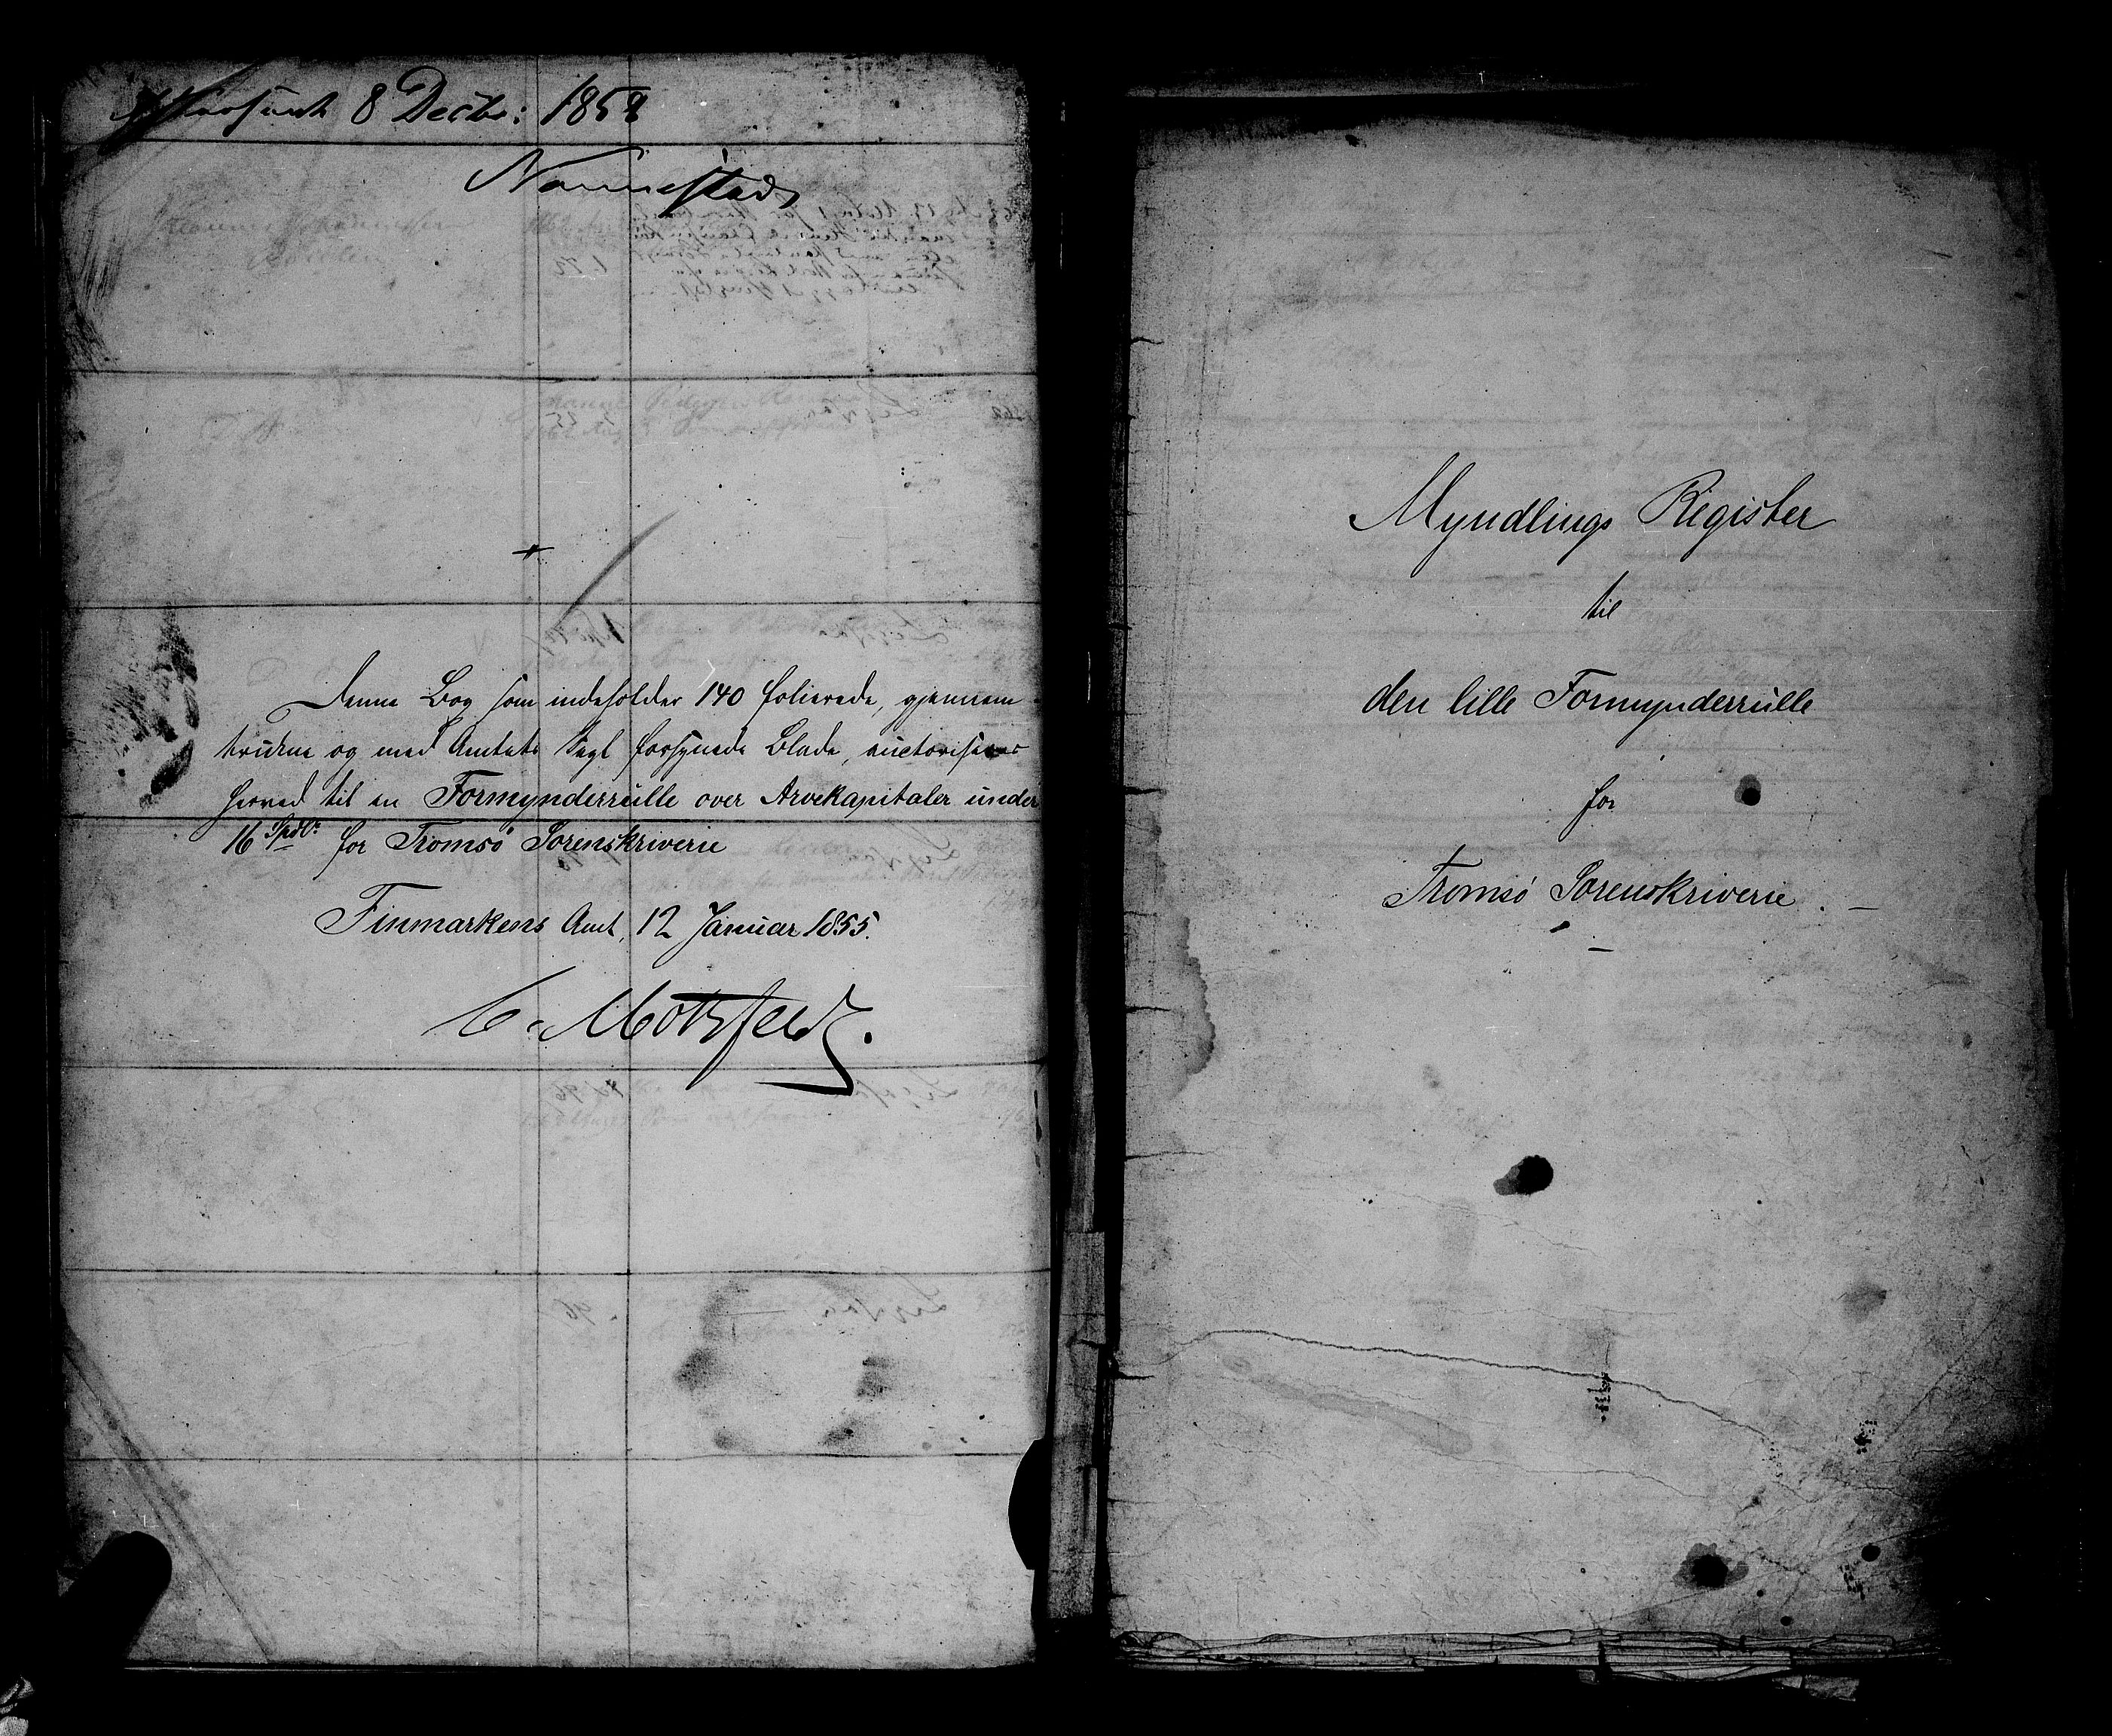 8 Decbr: 1858
Nannestad
Denne Bog som indeholder 140 folierede, gjennem
trukne og med Amtets Segl forsynede Blade, auctoriseres
herved til en Formynderrulle over Arvekapitaler under
16 Spdlr for Tromsø Sorenskriverie
Finmarkens Amt, 12 Januar 1855.
C. Motzfeldt.
Myndlings Register
til
den lille Formynderrulle
for
Tromsø Sorenskriverie. —